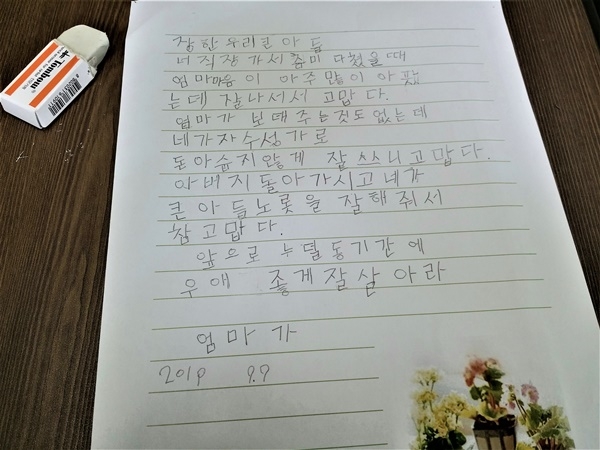 장한우리큰아들
너직장가서 춤미 다첬을때
엄마마음이 아주많이아팠
는데 잘나서서 고맙다.
엄마가 보태주는것도없는데
네가자수성가로
돈아숩지않게 잘쓰니고맙다.
아버지돌아가시고네가
큰아들노릇을 잘해줘서
참고맙다.
앞으로 누덜동기간에
우애 좋게잘살아라
엄마가
2019 9.9
Tombow